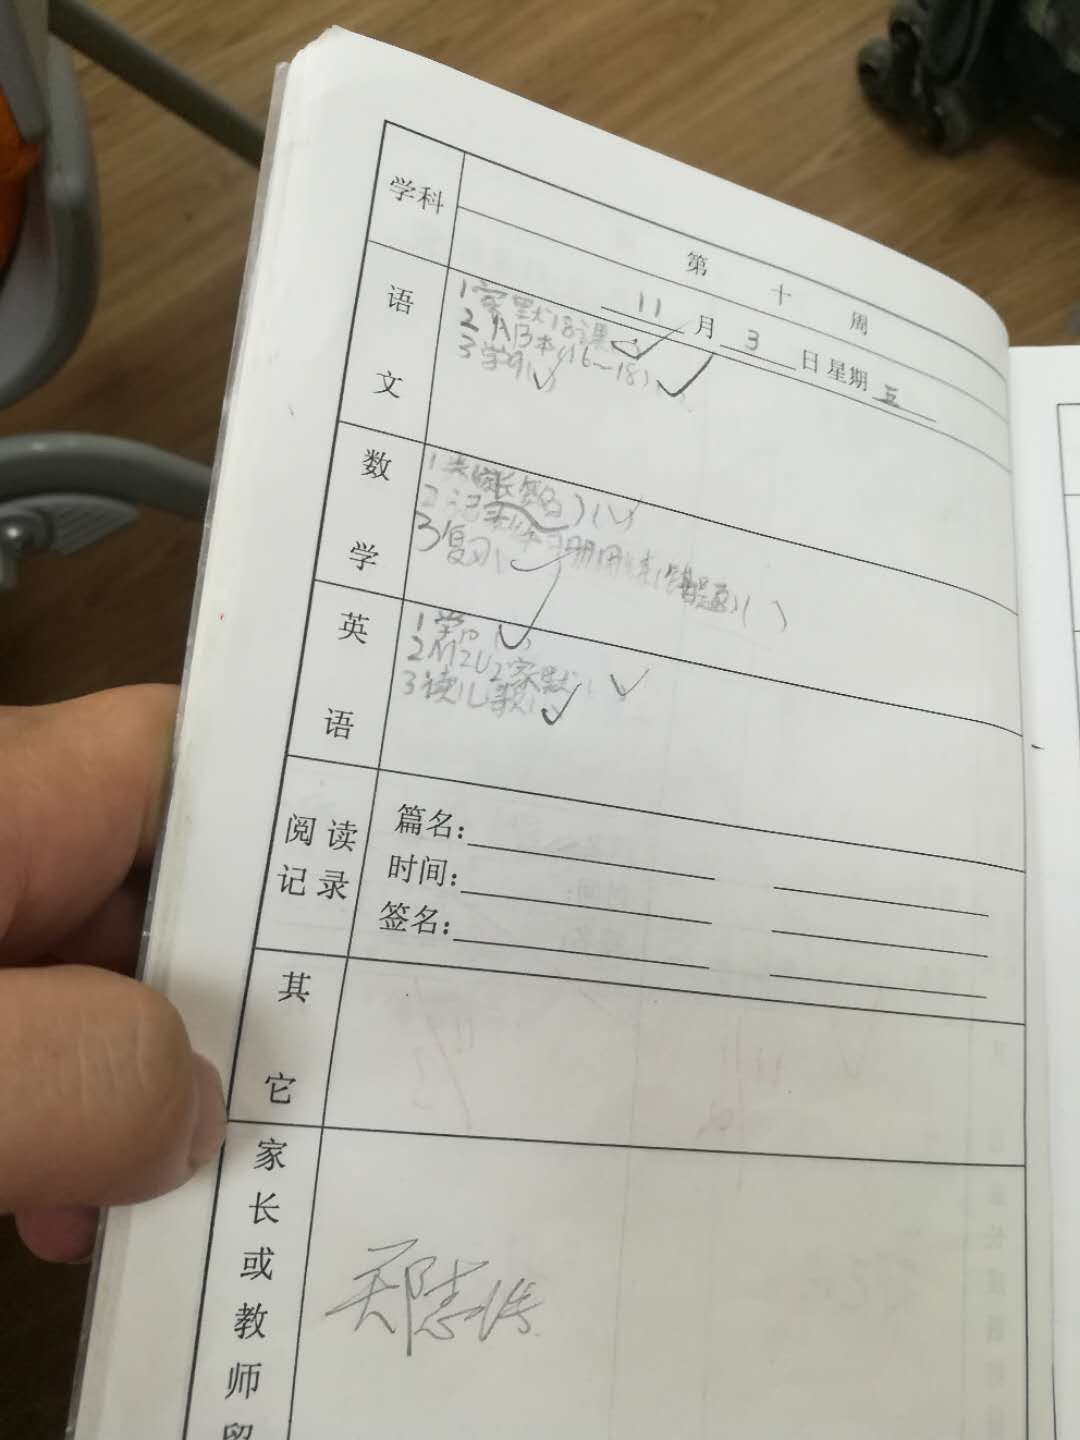 学科
第 十 周
11 月 3 日 星期 五
语文
1 家默18课
2 AB本(16~18)
3 学习
数学
1 家长签名
2 订册周练(错题)( )
3 复习
英语
1 学习
2 M2U2家默
3 读儿歌
阅读记录
篇名:
时间:
签名:
其它
家长或教师留